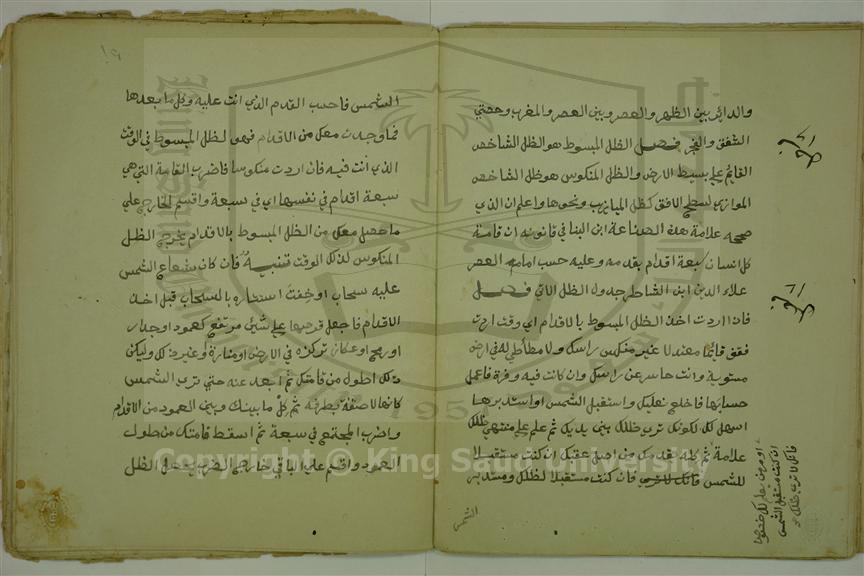 والدائر بين الظهر والعصر وبين العصر والمغرب وحصتي
الشفق والفجر فصل الظل المبسوط هو الظل الشاخص
القائم على بسيط الارض والظل المنكوس هو ظل الشاخص
الموازي لسطح الافق كظل الميازيب ونحوها واعلم ان الذي
صححه علامة هذه الصناعة ابن البنا في قانونه ان قامة
كل انسان سبعة اقدام بقدمه وعليه حسب امامه العصر
علاء الدين ابن الشاطر جدول الظل الاتي فصل
فان اردت اخذ الظل المبسوط بالاقدام اي وقت اردت
فقف قائما معتدلا غير منكس راسك ولا مطأطي له في ارض
مستوية وانت حاسر عن راسك وان كانت فيه وفرة فاعمل
حسابها فاخلع نعليك واستقبل الشمس او استدبرها
اسهل لك لكونك ترى ظلك بين يديك ثم علم على منتهى ظلك
علامة ثم كله بقدمك من اصل عقبك ان كنت مستقبلا
للشمس فانك لا ترى فان كنت مستقبلا لظلك ومستدبر
الشمس
فانك لا ترى ظلك
ان كنت مستقبل الشمس
الشمس فاحسب القدم الذي انت عليه وكل ما بعدها
فما وجدت معك من الاقدام فهو الظل المبسوط في الوقت
الذي انت فيه فان اردت منكوسا فاضرب القامة التي هي
سبعة اقدام في نفسها اي في سبعة واقسم الخارج على
ما حصل معك من الظل المبسوط بالاقدام يخرج الظل
المنكوس لذلك الوقت تنبيه فان كان شعاع الشمس
عليه سحاب او خفت استتاره بالسحاب قبل اخذ
الاقدام فاجعل قرصها على شئ مرتفع كعمود او جدار
او رمح او عكاز تركزه في الارض او منارة وغير ذلك وليكن
ذلك اطول من قامتك ثم ابعد عنه حتى ترى الشمس
كانها لاصقة بطرفه ثم كل ما بينك وبين العمود من الاقدام
واضرب المجتمع في سبعة ثم اسقط قامتك من طول
العمود واقسم على الباقي خارج الضرب يحصل الظل
Copyright © King Saud University